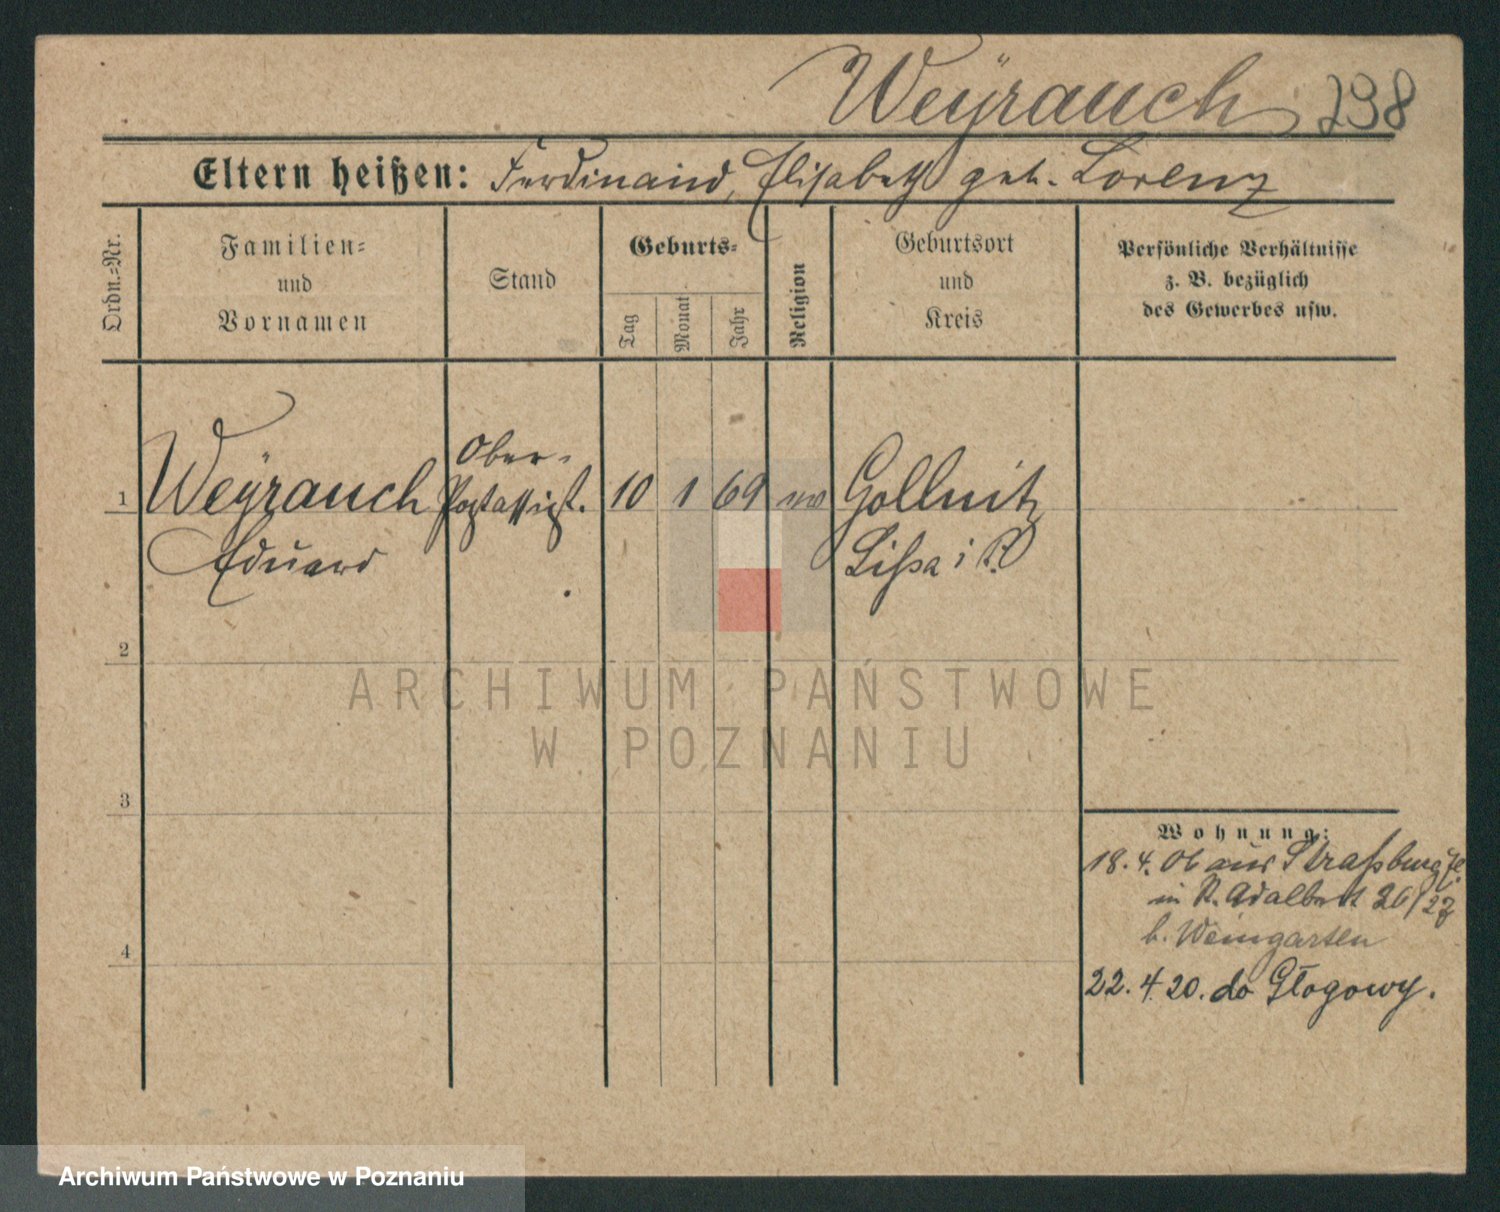 Weÿrauch 238
Eltern heißen: Ferdinand, Elisabeth geb. Lorenz
Ordn.-Nr.
Familien-
und
Vornamen
Stand
Geburts-
Tag
Monat
Jahr
Religion
Geburtsort
und
Kreis
Persönliche Verhältnisse
z. B. bezüglich
des Gewerbes usw.
1 Weÿrauch Ober- 10 1 69 Gollnitz
Postassist.
Eduard Lissa i P.
2
3
4
Wohnung:
18. 4. 06 aus Strassburg
in St. Adalbert 26/27
b. Weingarten
22. 4. 20. do Głogowy.
ARCHIWUM PAŃSTWOWE
W POZNANIU
Archiwum Państwowe w Poznaniu